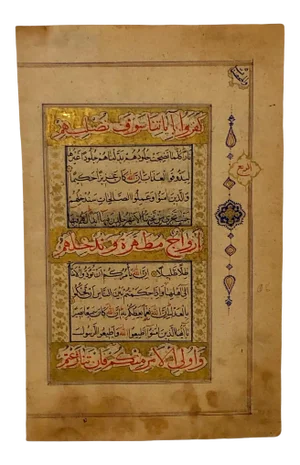 كفروا بآياتنا سوف نصليهم
نارا كلما نضجت جلودهم بدلناهم جلودا غيرها
ليذوقوا العذاب ان الله كان عزيزا حكيما
والذين آمنوا وعملوا الصالحات سندخلهم
جنات تجري من تحتها الانهار خالدين فيها ابدا لهم فيها
ازواج مطهرة وندخلهم
ظلا ظليلا ان الله يأمركم ان تؤدوا الامانات
الى اهلها واذا حكمتم بين الناس ان تحكموا
بالعدل ان الله نعما يعظكم به ان الله كان سميعا بصيرا
يا ايها الذين آمنوا اطيعوا الله واطيعوا الرسول
واولي الامر منكم فان تنازعتم